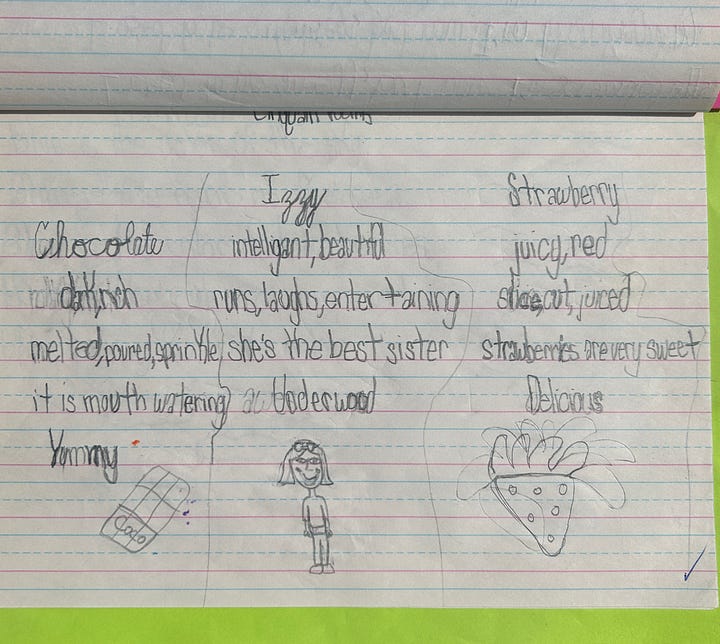 Cinquain Poems
Chocolate
dark, rich
melted, poured, sprinkle
it is mouth watering
Yummy
Coco
Izzy
intelligent, beautiful
runs, laughs, entertaining
she's the best sister
Underwood
Strawberry
juicy, red
slice, cut, juiced
strawberries are very sweet
Delicious